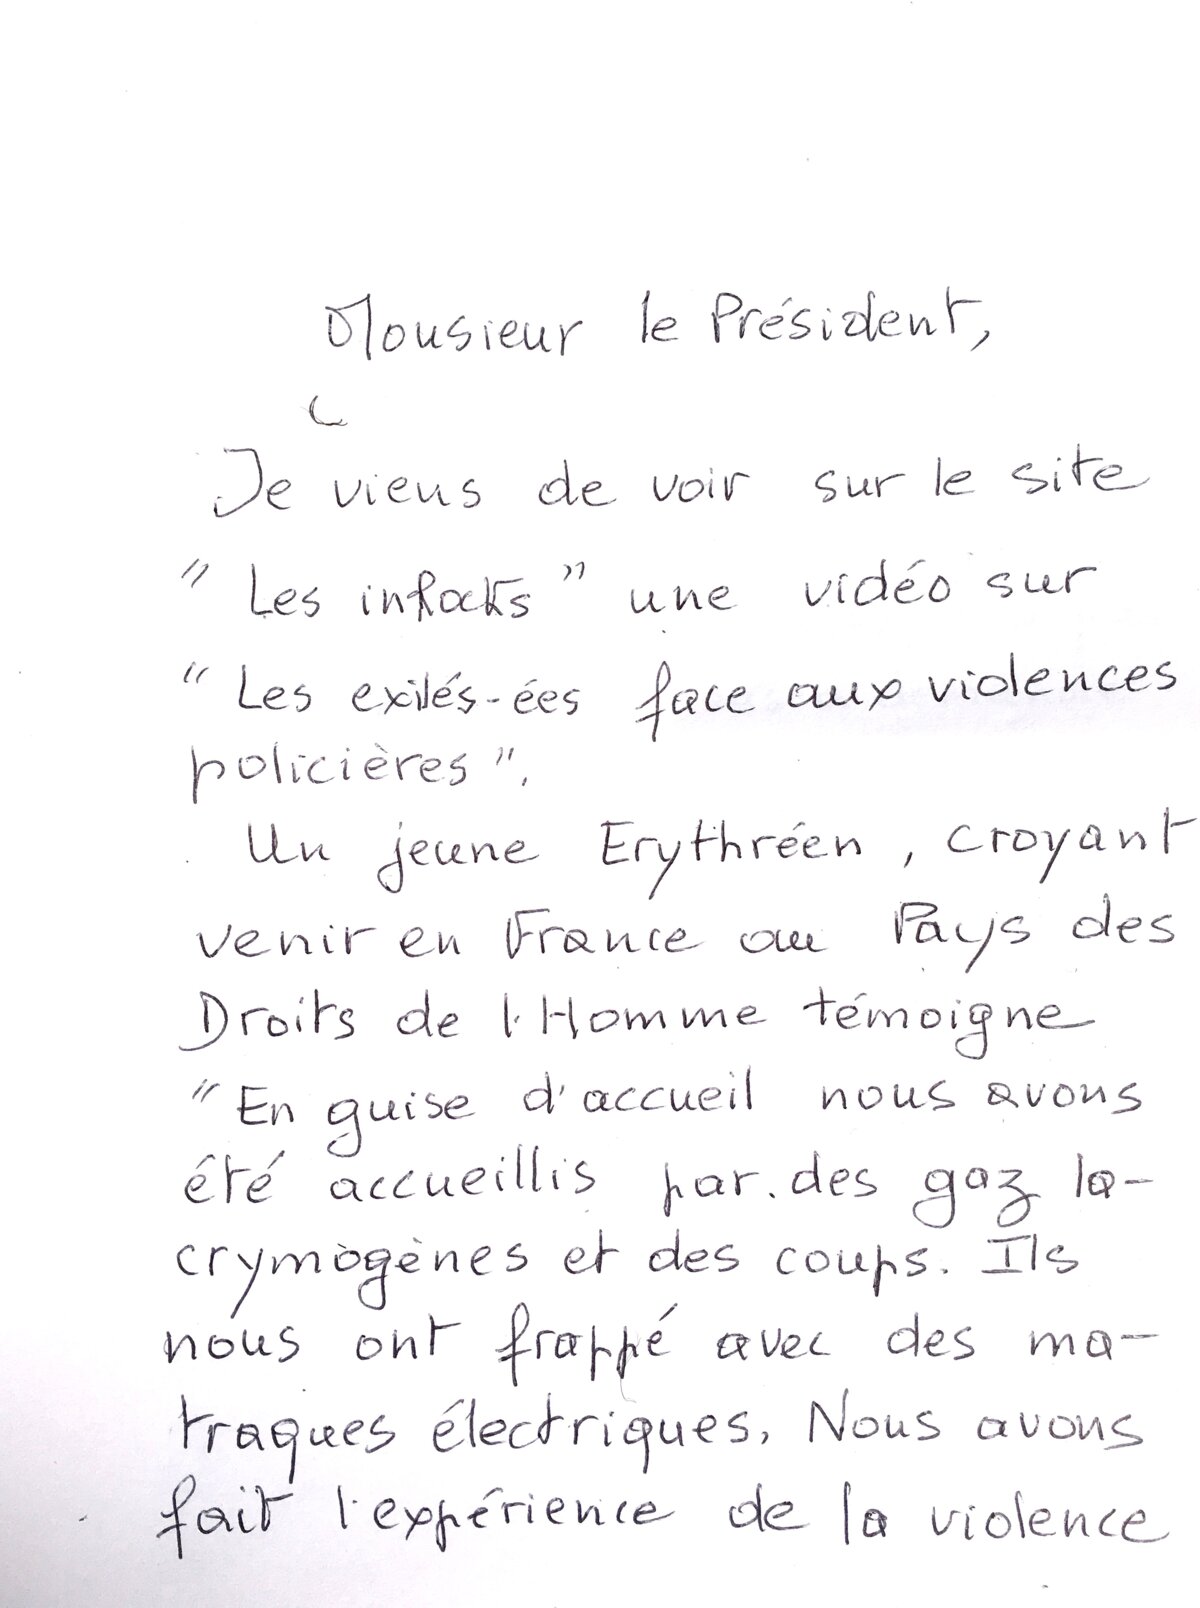 Monsieur le Président,
Je viens de voir sur le site
" Les infockts " une vidéo sur
" Les exilés-ées face aux violences
policières ".
Un jeune Erythréen, croyant
venir en France au Pays des
Droits de l'Homme témoigne
" En guise d'accueil nous avons
été accueillis par des gaz la-
crymogènes et des coups. Ils
nous ont frappé avec des ma-
traques électriques. Nous avons
fait l'expérience de la violence